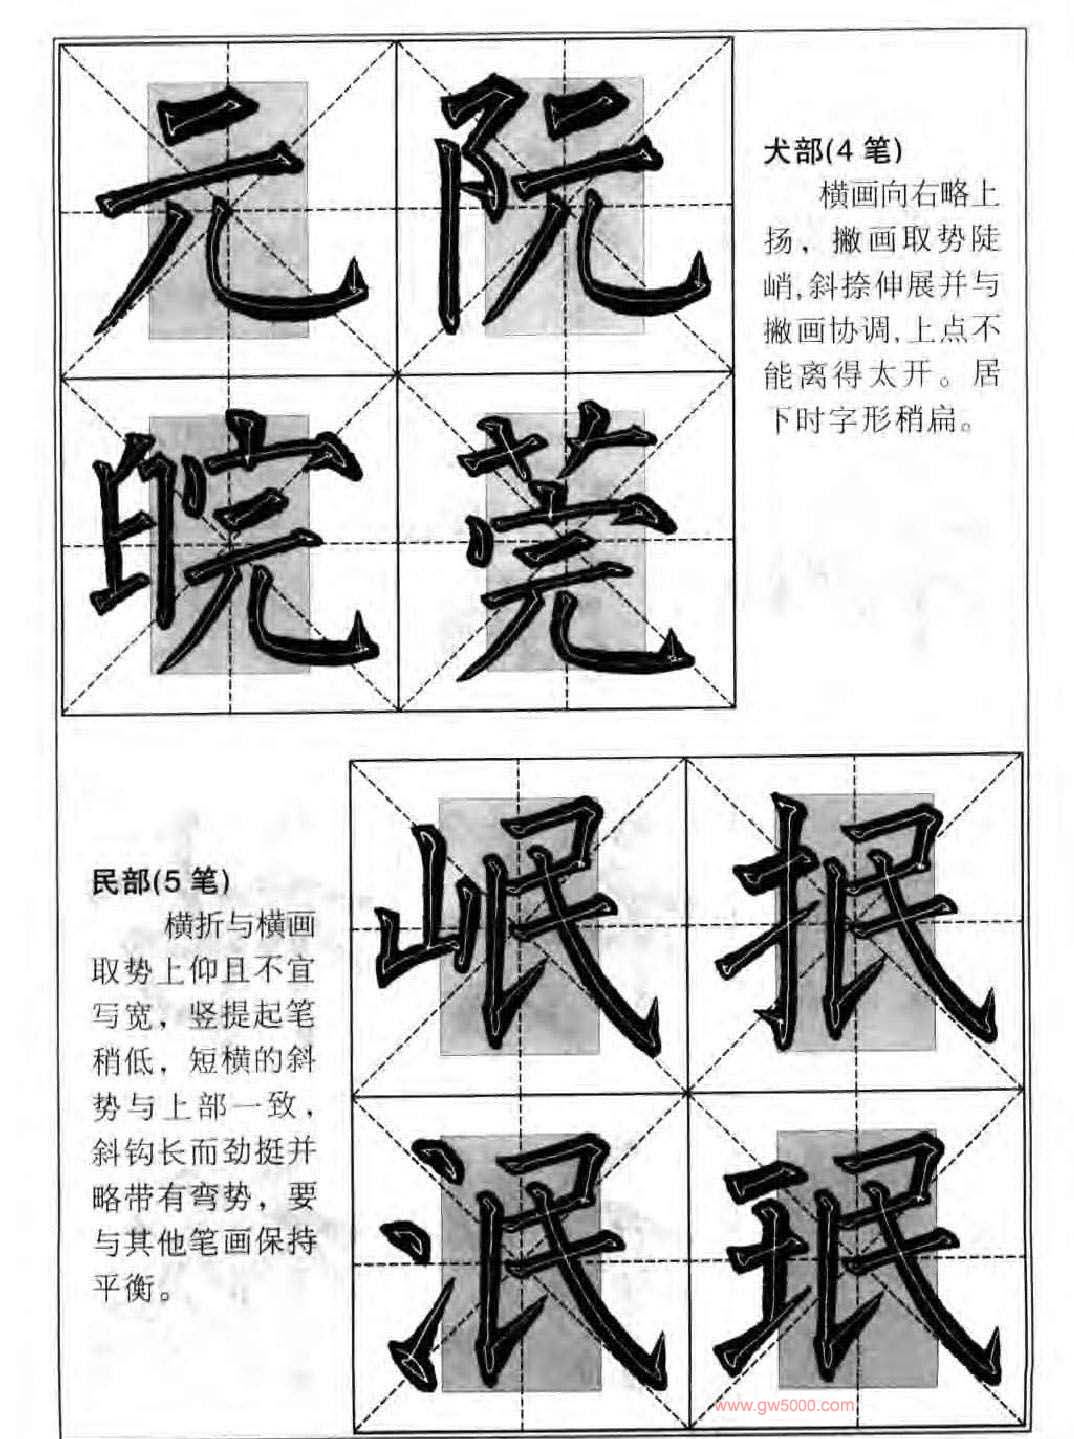 元 阮
犬部(4笔)
横画向右略上
扬，撇画取势陡
峭,斜捺伸展并与
撇画协调,上点不
能离得太开。居
下时字形稍扁。
皖 莞
岷 抿
民部(5笔)
横折与横画
取势上仰且不宜
写宽，竖提起笔
稍低，短横的斜
势与上部一致，
斜钩长而劲挺并
略带有弯势，要
与其他笔画保持
平衡。
泯 珉
www.gw5000.com